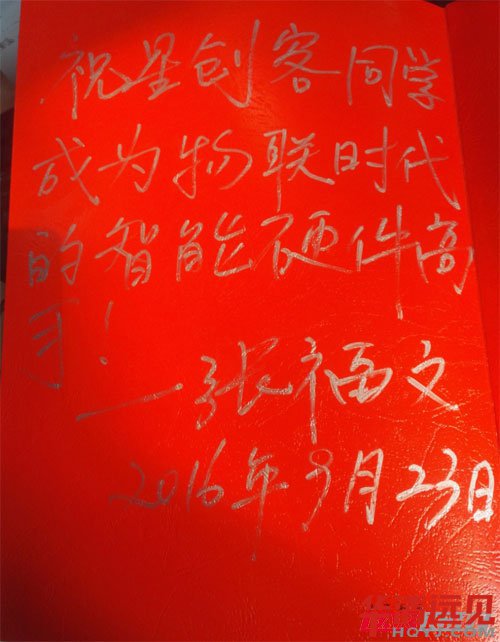 祝星创客同学
成为物联时代
的智能硬件高
手!
—张福文
2016年9月23日